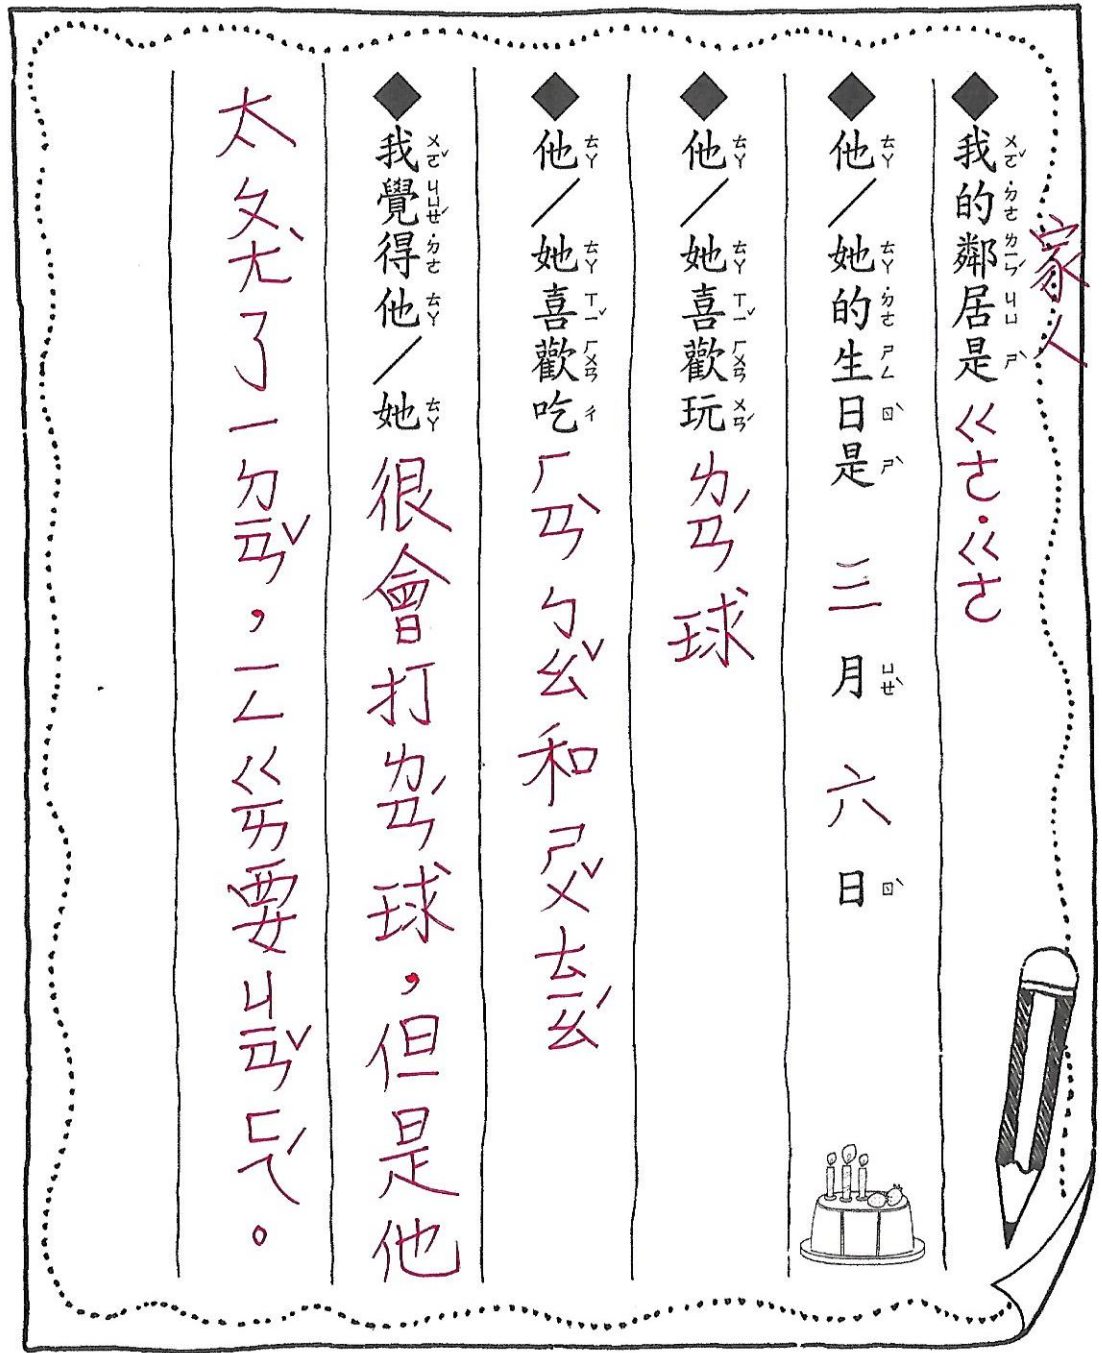 家人
◆我的鄰居是ㄍㄜ˙ㄍㄜ
◆他／她的生日是 三 月 六 日
◆他／她喜歡玩ㄌㄢˊ球
◆他／她喜歡吃ㄏㄢˋㄅㄠˇ和ㄕㄨˇㄊㄧㄠˊ
◆我覺得他／她很會打ㄌㄢˊ球，但是他
太ㄆㄤˋ了一ㄉㄧㄢˇ，ㄧㄥㄍㄞ要ㄐㄧㄢˇㄈㄟˊ。